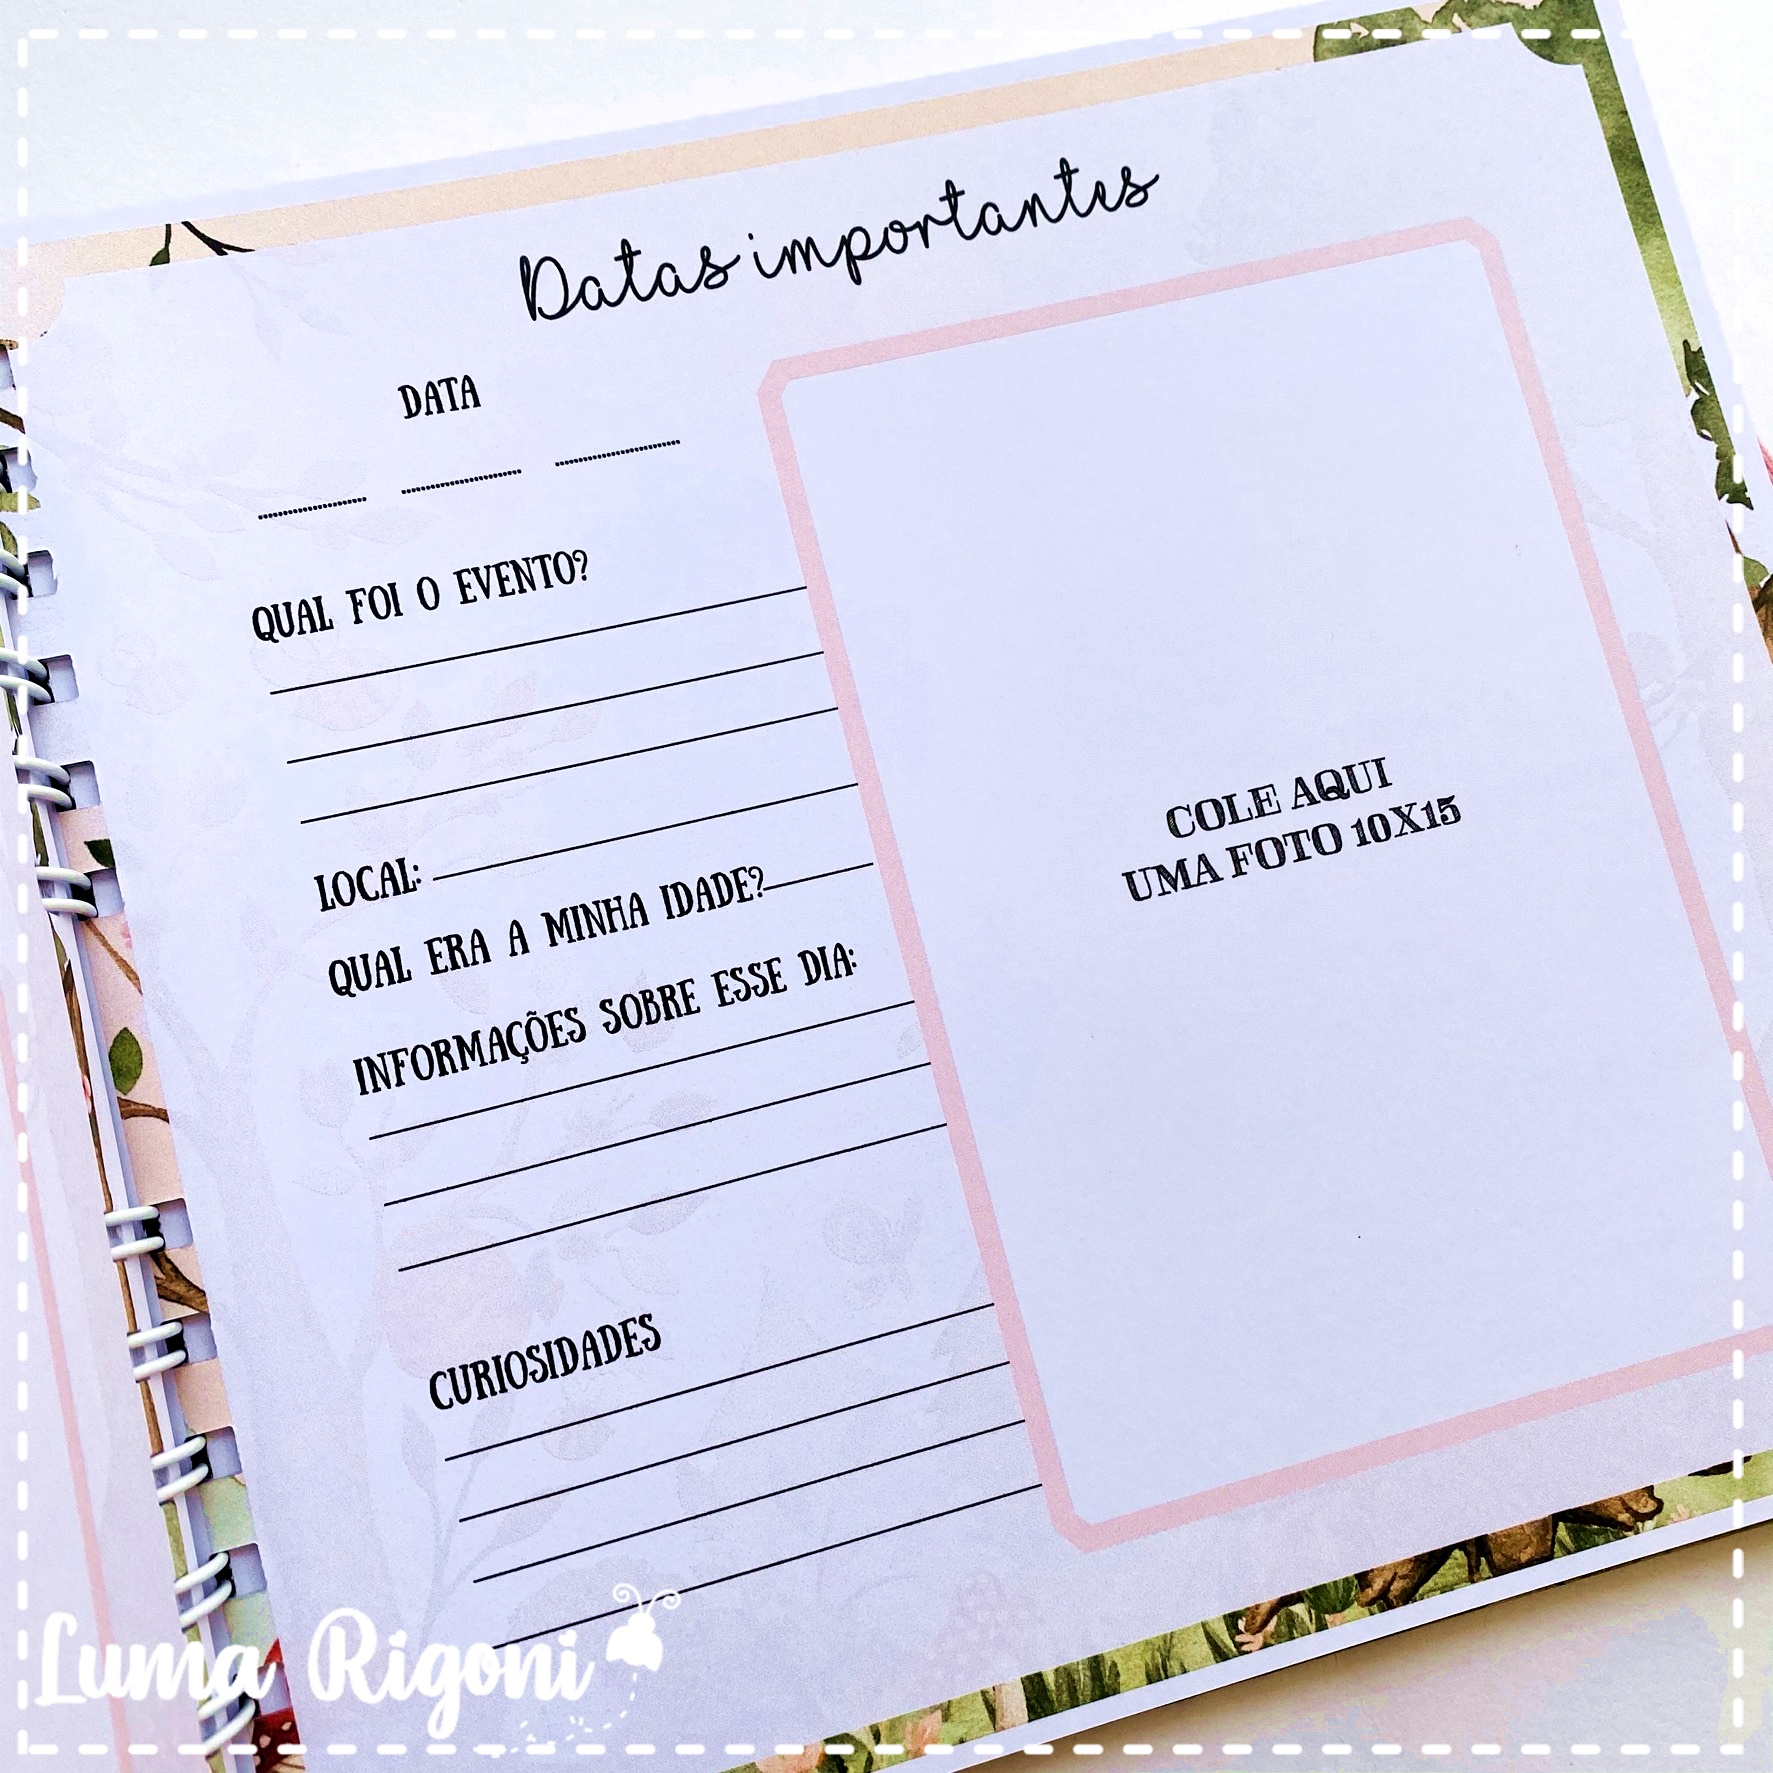 Datas importantes
DATA
QUAL FOI O EVENTO?
LOCAL:
QUAL ERA A MINHA IDADE?
INFORMAÇÕES SOBRE ESSE DIA:
CURIOSIDADES
COLE AQUI
UMA FOTO 10X15
Luma Rigoni